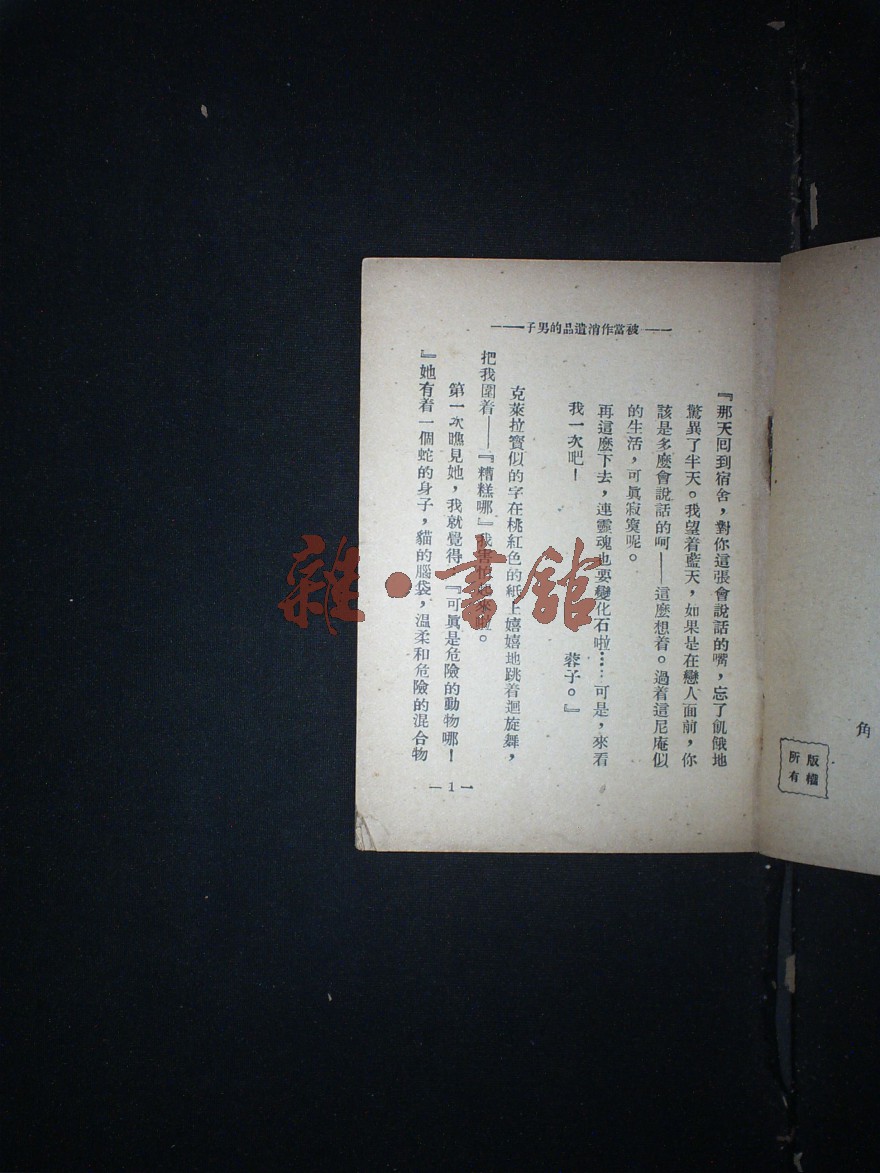 角
版權
所有
——被當作消遣品的男子——
『那天囘到宿舍，對你這張會說話的嘴，忘了飢餓地
驚異了半天。我望着藍天，如果是在戀人面前，你
該是多麼會說話的呵——這麼想着。過着這尼庵似
的生活，可眞寂寞呢。
再這麼下去，連靈魂也要變化石啦……可是，來看
我一次吧！
蓉子。』
克萊拉寶似的字在桃紅色的紙上嬉嬉地跳着迴旋舞，
把我圍着——『糟糕哪』我害怕起來啦。
第一次瞧見她，我就覺得：『可眞是危險的動物哪！
』她有着一個蛇的身子，貓的腦袋，溫柔和危險的混合物
— 1 —
雜·書館